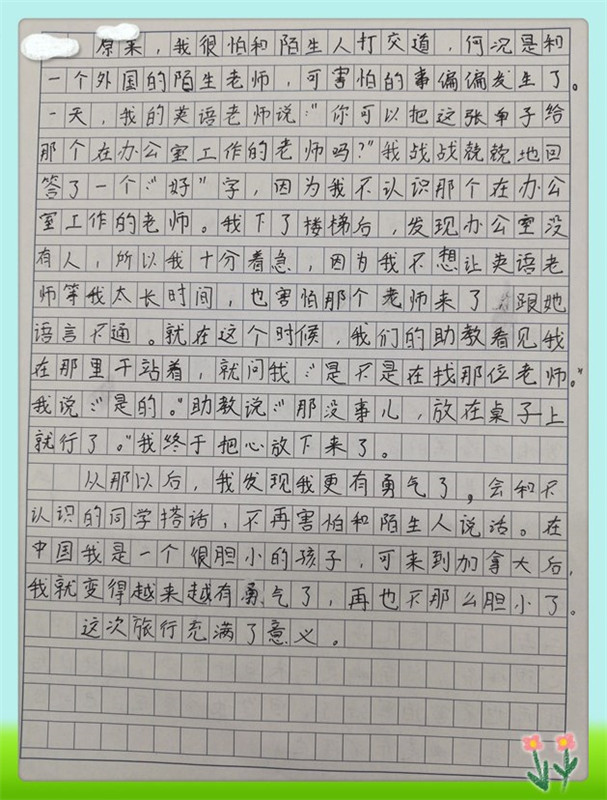 原来，我很怕和陌生人打交道，何况是和
一个外国的陌生老师，可害怕的事偏偏发生了。
一天，我的英语老师说：“你可以把这张单子给
那个在办公室工作的老师吗？”我战战兢兢地回
答了一个：“好”字，因为我不认识那个在办公
室工作的老师。我下了楼梯后，发现办公室没
有人，所以我十分着急，因为我不想让英语老
师等我太长时间，也害怕那个老师来了，跟她
语言不通。就在这个时候，我们的助教看见我
在那里干站着，就问我：“是不是在找那位老师。”
我说：“是的。”助教说：“那没事儿，放在桌子上
就行了。”我终于把心放下来了。
从那以后，我发现我更有勇气了，会和不
认识的同学搭话，不再害怕和陌生人说话。在
中国我是一个很胆小的孩子，可来到加拿大后，
我就变得越来越有勇气了，再也不那么胆小了。
这次旅行充满了意义。